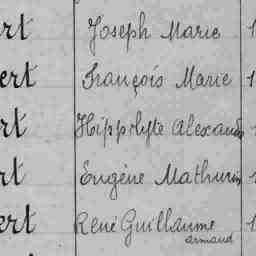 ert Joseph Marie 1
ert François Marie 1
ert Hippolyte Alexand
ert Eugène Mathurin
ert René Guillaume 1
armand